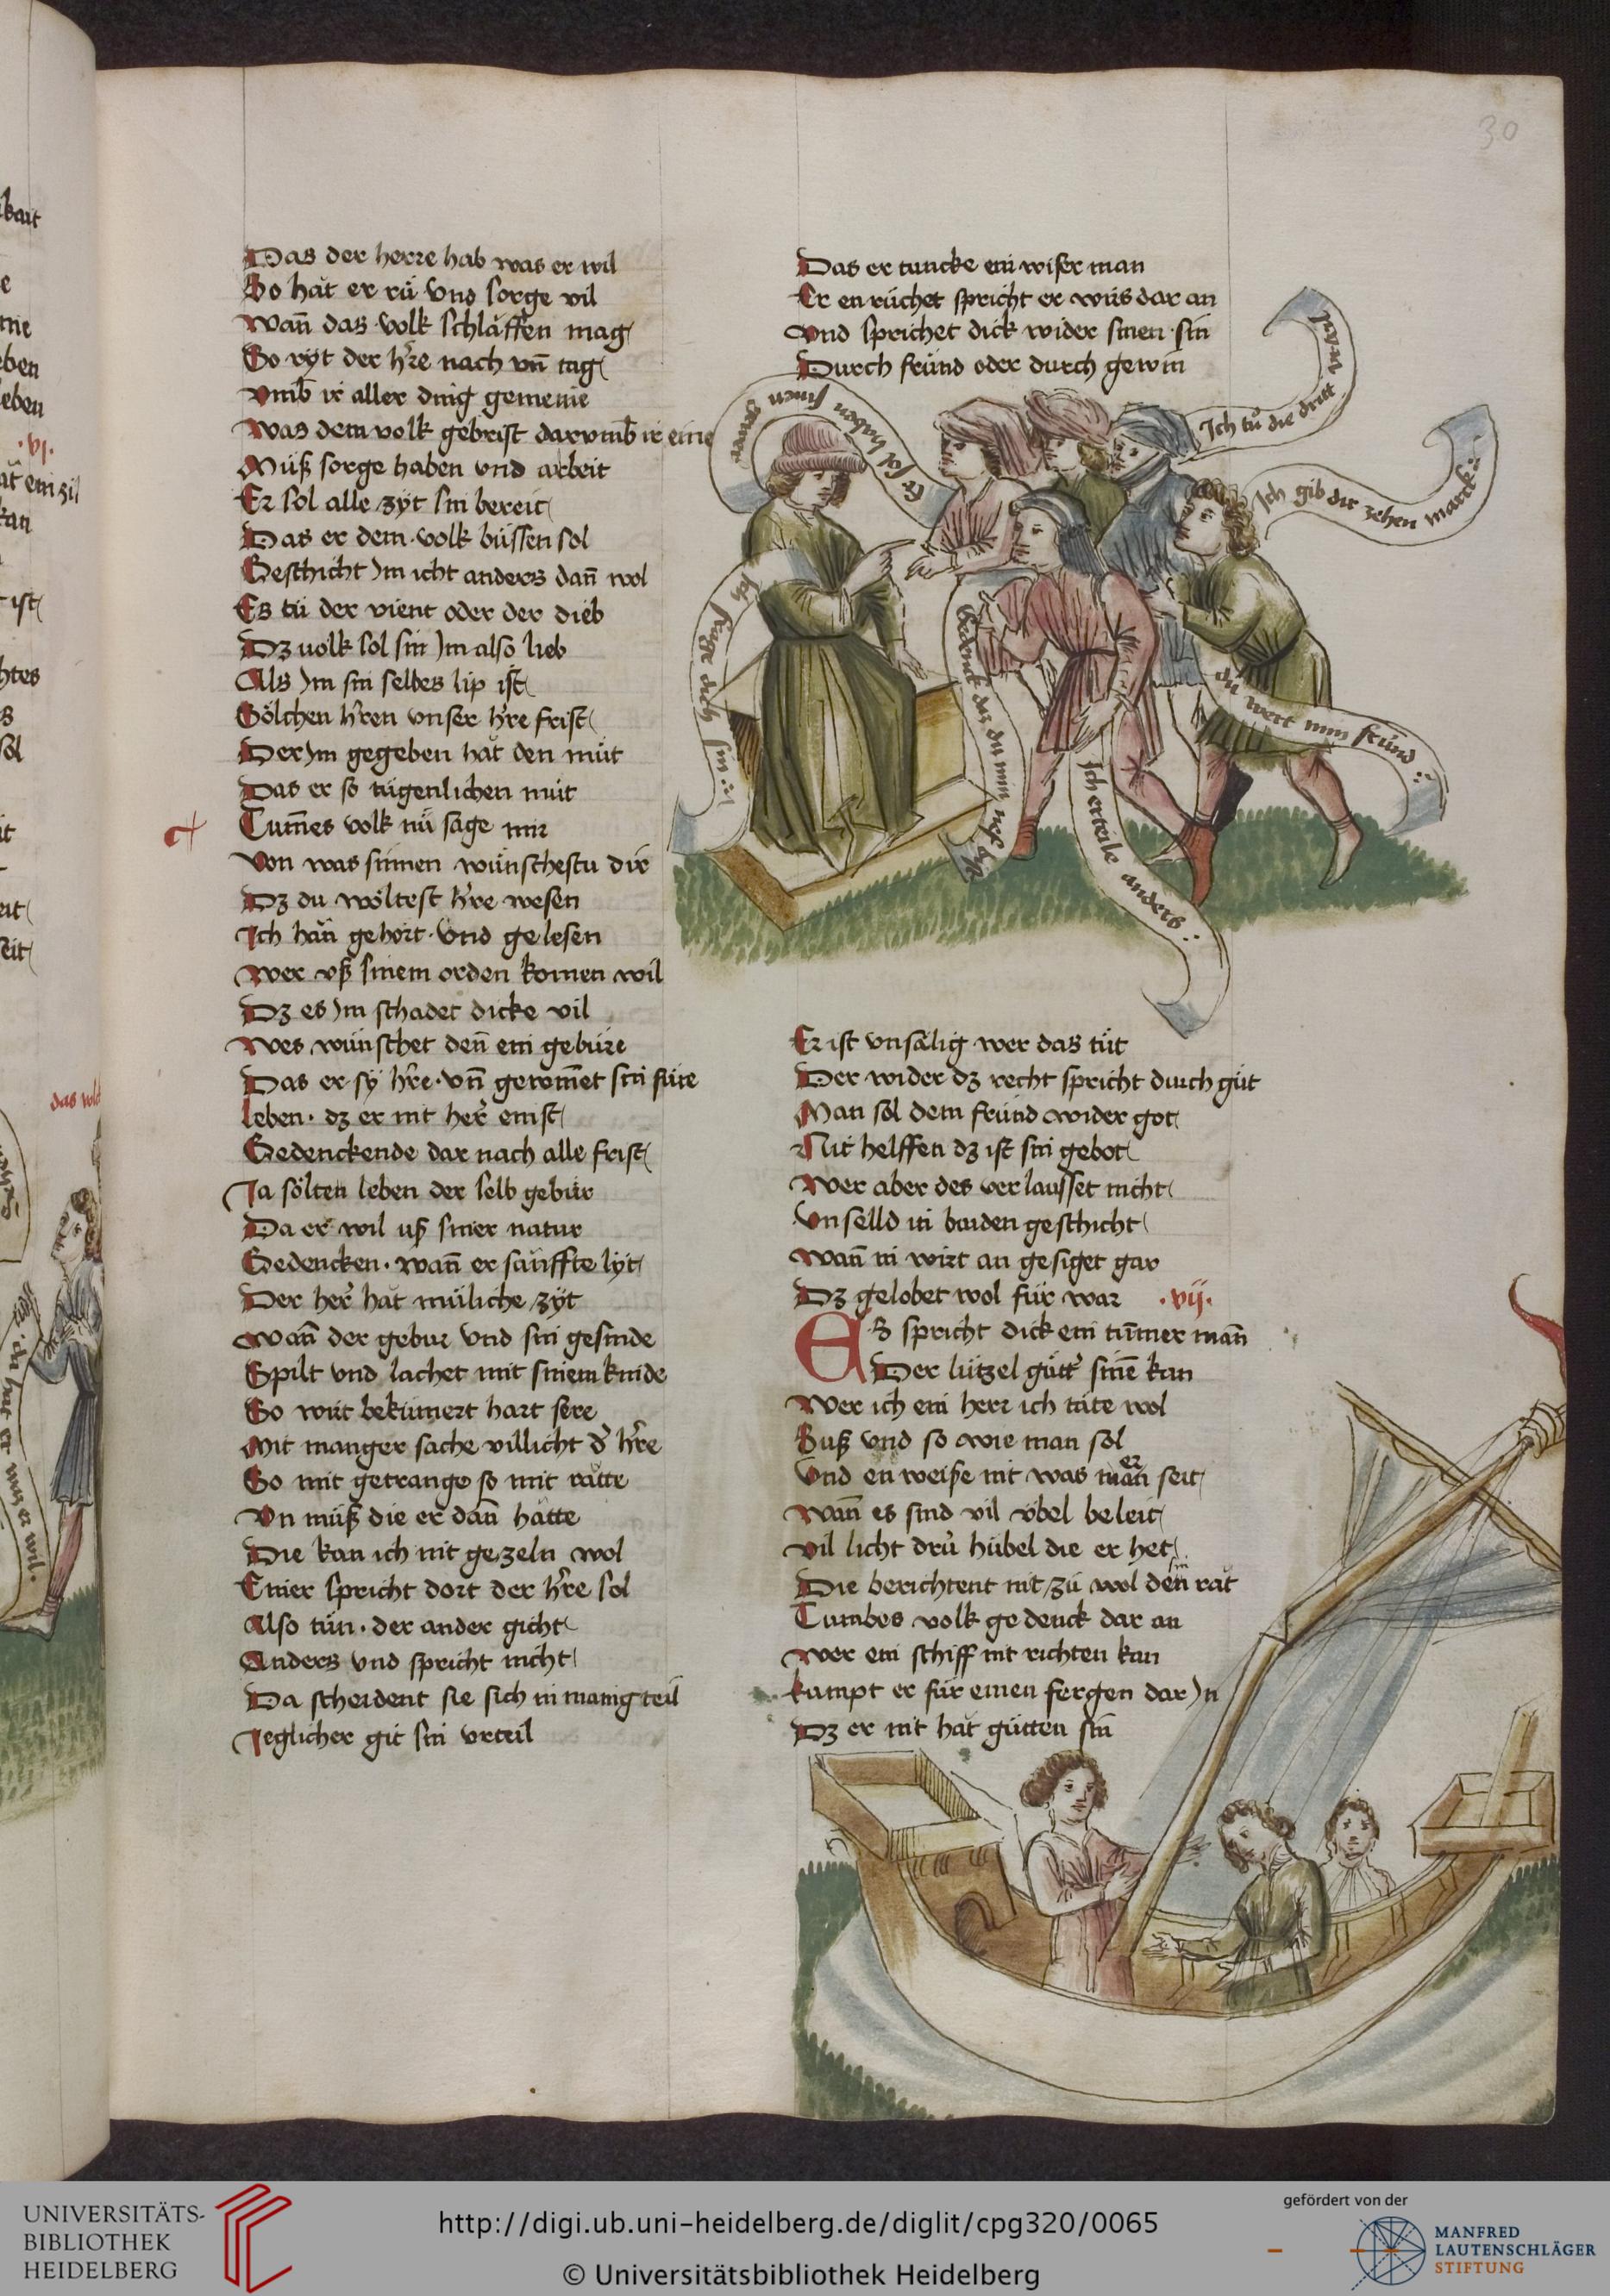 30
Das der herre hab was er wil
So hăt er rŭ vnd sorge vil
Wan̄ das volk schlăffen mag
So ryt der h're nach vn̄ tag
vmb ir aller ding gemeine
Was dem volk gebrist darvmb ir eine
Mŭß sorge haben vnd arbeit
Er sol alle zyt sin bereit
Das er dem volk bŭssen sol
Geschicht Jm icht anders dan̄ wol
Es tŭ der vient oder der dieb
Dz volk sol sin Jm also lieb
Als Jm sin selbes lip ist
Sölchen h'ren vnser h're frist
Der Jm gegeben hăt den mŭt
Das er so tugenlichen mŭt
Tum̄es volk nŭ sage mir
Von was sinnen wünschestu dir
Dz du wöltest h're wesen
Ich hăn gehört vnd gelesen
Wer vß sinem orden komen wil
Dz es Jm schadet dicke vil
Wes wünschet den̄ ein gebŭre
Das er sÿ h're vn̄ gewom̄et sin fŭre
leben dz er nit her' enist
Gedenckende dar nach alle frist
Ja sölten leben der selb gebŭr
Da er wil uß siner natur
Gedencken wan̄ er sanffte lyt
Der her' hăt mŭliche zÿt
Wan̄ der gebur vnd sin gesinde
Spilt vnd lachet mit sinem kinde
So wirt bekŭmert hart sere
Mit manger sache villicht d' h're
So mit getrange so mit rătte
Vn mŭß die er dan̄ hătte
Die kan ich nit gezeln wol
Einer spricht dort der h're sol
Also tŭn der ander gicht
Anders vnd spricht nicht
Da scheident sie sich in manig teil
Jeglicher git sin vrteil
Das er tuncke ein wiser man
Er en rŭchet spricht er wŭs dar an
Vnd sprichet dick wider sinen sin
Durch frŭnd oder durch gewin
Er sol haben sinen
Ich tŭ die dritt
Ich gib dir zehen marck
Ich frage dich
Gedenck daz du min
du wert min frŭnd
Ich erteile anders
Er ist vnsălig wer das tŭt
Der wider dz recht spricht durch gŭt
Man sol dem frŭnd wider got
Nit helffen dz ist sin gebot
Wer aber des verlausset nicht
Vnselld in baiden geschicht
Wan̄ in wirt an gesiget gar
Dz gelobet wol fŭr war .vij.
Es spricht dick ein tum̄er man̄
Der lŭtzel gŭtt' sin̄e kan
Wer ich ein herr ich tăte wol
Suß vnd so wie man sol
Vnd en weiße nit was man er seit
Wan̄ es sind vil vbel beleit
Vil licht drŭ hŭbel die er het
Die berichtent nit zŭ wol den sin răt
Tumbes volk gedenck dar an
Wer ein schiff nit richten kan
kumpt er fŭr einen fergen dar Jn
Dz er nit hăt gŭtten sin
UNIVERSITÄTS-
BIBLIOTHEK
HEIDELBERG
http://digi.ub.uni-heidelberg.de/diglit/cpg320/0065
© Universitätsbibliothek Heidelberg
gefördert von der
MANFRED
LAUTENSCHLÄGER
STIFTUNG